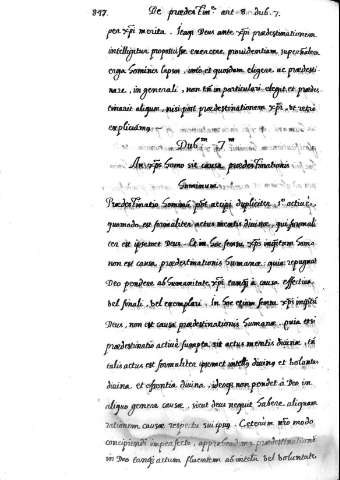 847. De prædestinne. art. 8. dub. 7.
per xpi merita. itaqz Deus ante xpi prædestinationem
intelligitur proposuisse exercere providentiam supernālem
erga hominis lapsum, imò et quosdam eligere ac prædesti-
nare, in generali, non tn in particulari elegit, et prædes-
tinavit aliquem, nisi post prædestinationem xpi, ut retro
explicuimus.
Dubm 7m
An xps homo sit causa prædestinationis
hominum
Prædestinatio hominis pōt accipi dupliciter, 1º activè,
quomodo est formaliter actus mentis divinæ, qui formali-
ter est ipsemet Deus. et in hoc sensu xps inqtum homo
non est causa prædestinationis humanæ, quia repugnat
Deo pendere ab humanitate xpi tanqz à causa effectiva
vel finali, vel exemplari. In hoc etiam sensu xps inqtū
Deus, non est causa prædestinationis humanæ, quia etsi
prædestinatio activè sumpta sit actus mentis divinæ, tn
talis actus est formaliter ipsemet intellqs divinus et voluntas
divina, et essentia divina, ideoqz non pendet à Deo in
aliquo genere causæ, sicut deus nequit habere aliquam
rationem causæ respectu sui ipsius. Ceterum nro modo
concipiendi imperfecto, apprehendimus prædestinationem
in Deo tanqz actum fluentem ab intellu vel voluntate